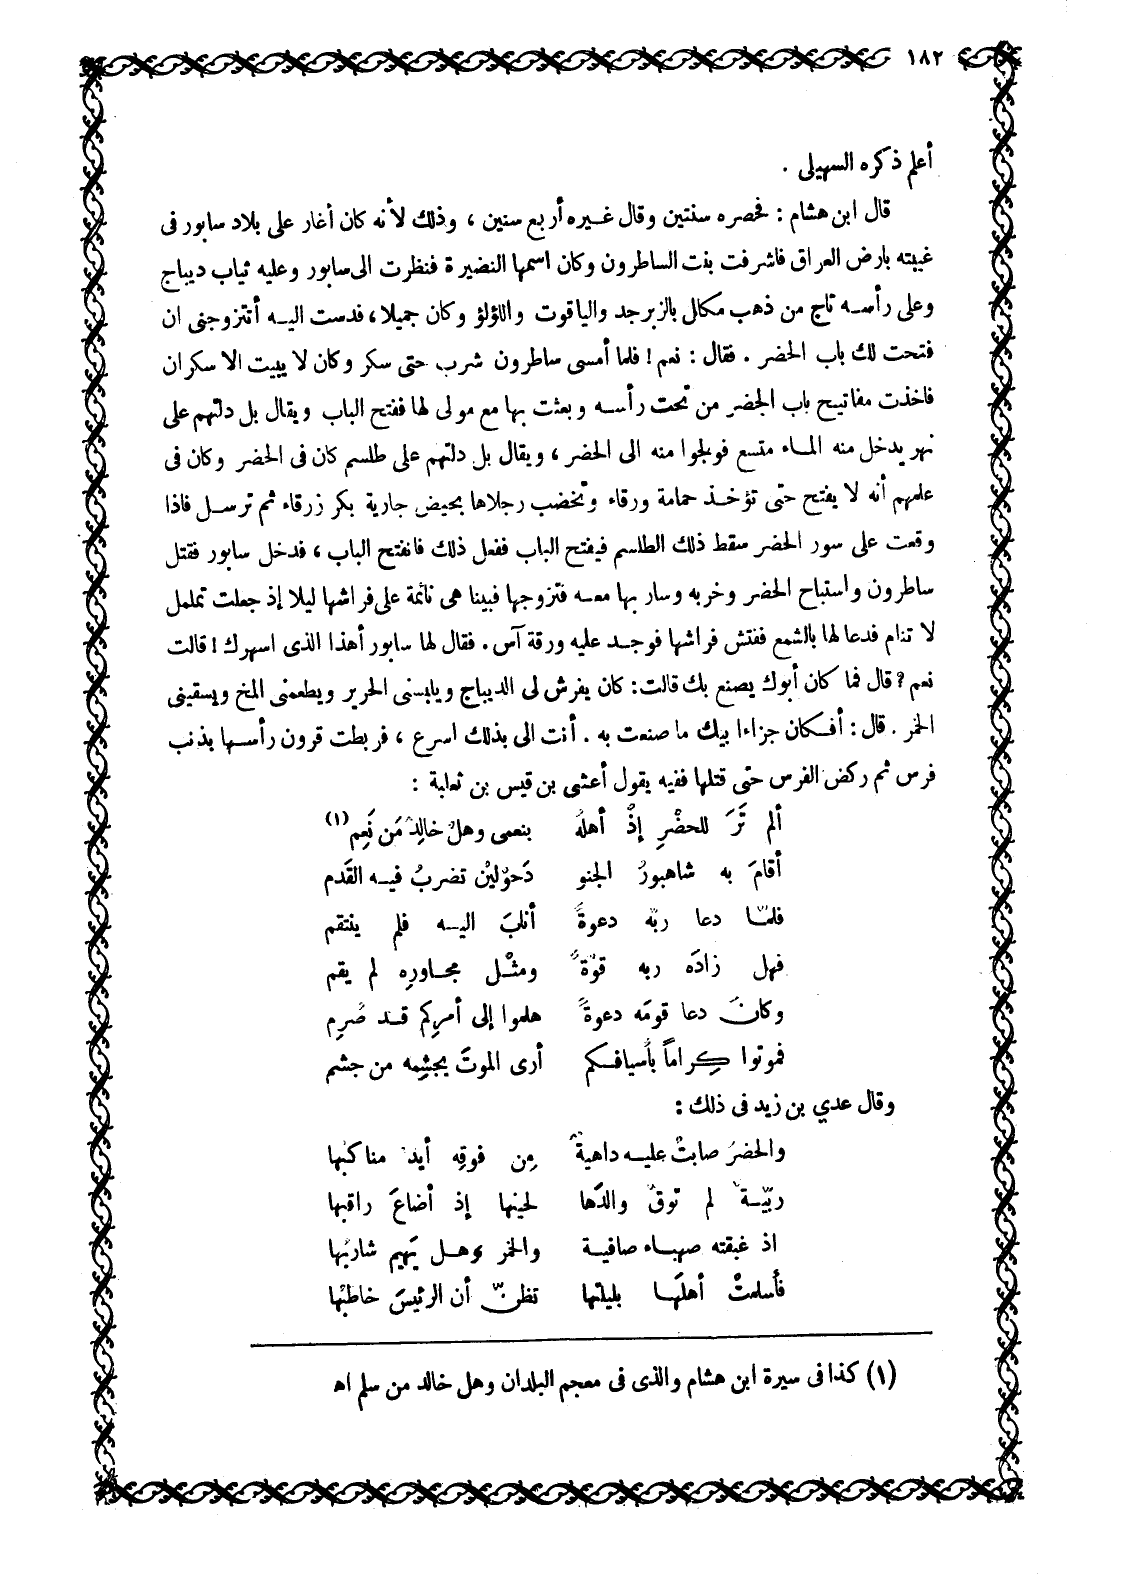 ١٨٢
أعلم ذكره السهيلى .
قال ابن هشام : فحصره سنتين وقال غيره أربع سنين ، وذلك لأنه كان أغار على بلاد سابور فى
غيبته بارض العراق فاشرفت بنت الساطرون وكان اسمها النضيرة فنظرت الى سابور وعليه ثياب ديباج
وعلى رأسه تاج من ذهب مكلل بالزبرجد والياقوت واللؤلؤ وكان جميلا ، فدست اليه أتتزوجنى ان
فتحت لك باب الحضر . فقال : نعم ! فلما أمسى ساطرون شرب حتى سكر وكان لا يبيت الا سكران
فاخذت مفاتيح باب الحضر من تحت رأسه وبعثت بها مع مولى لها ففتح الباب ويقال بل دلتهم على
نهر يدخل منه الماء متسع فولجوا منه الى الحضر ، ويقال بل دلتهم على طلسم كان فى الحضر وكان فى
علمهم أنه لا يفتح حتى تؤخذ حمامة ورقاء وتخضب رجلاها بحيض جارية بكر زرقاء ثم ترسل فاذا
وقعت على سور الحضر سقط ذلك الطلسم فيفتح الباب ففعل ذلك فانفتح الباب ، فدخل سابور فقتل
ساطرون واستباح الحضر وخربه وسار بها معه فتزوجها فبينا هى نائمة على فراشها ليلا إذ جعلت تململ
لا تنام فدعا لها بالشمع ففتش فراشها فوجد عليه ورقة آس . فقال لها سابور أهذا الذى اسهرك ! قالت
نعم ? قال فما كان أبوك يصنع بك قالت : كان يفرش لى الديباج ويلبسنى الحرير ويطعمنى المخ ويسقينى
الخمر . قال : أفكان جزاءا بيك ما صنعت به . أنت الى بذلك اسرع ، فربطت قرون رأسها بذنب
فرس ثم ركض الفرس حتى قتلها ففيه يقول أعشى بن قيس بن ثعلبة :
ألم تَرَ للحضْرِ إذْ أهلهُ بنعمى وهلْ خالدٌ مَن نَعِم (١)
أقامَ به شاهبورُ الجنو دَحوْلينْ تضربُ فيه القَدم
فلمّا دعا ربّه دعوةً أنابَ اليه فلم ينتقم
فهل زادَه ربه قوّةً ومثْل مجاورِه لم يقم
وكانَ دعا قومَه دعوةً هلموا إلى أمرِكم قد صُرِم
فموتوا كِراماً بأسيافكم أرى الموتَ يجشِمه من جشم
وقال عدي بن زيد فى ذلك :
والحضرُ صابتْ عليه داهيةٌ مِن فوقِه أيدٌ مناكبُها
ربّيةٌ لم توقَّ والدَها لحينها إذ أضاعَ راقبها
اذ غبقته صهباء صافية والخمر وهل يَهيم شاربُها
فأسلمتْ أهلَها بليلتها تظنّ أن الرئيسَ خاطبُها
(١) كذا فى سيرة ابن هشام والذى فى معجم البلدان وهل خالد من سلم اه